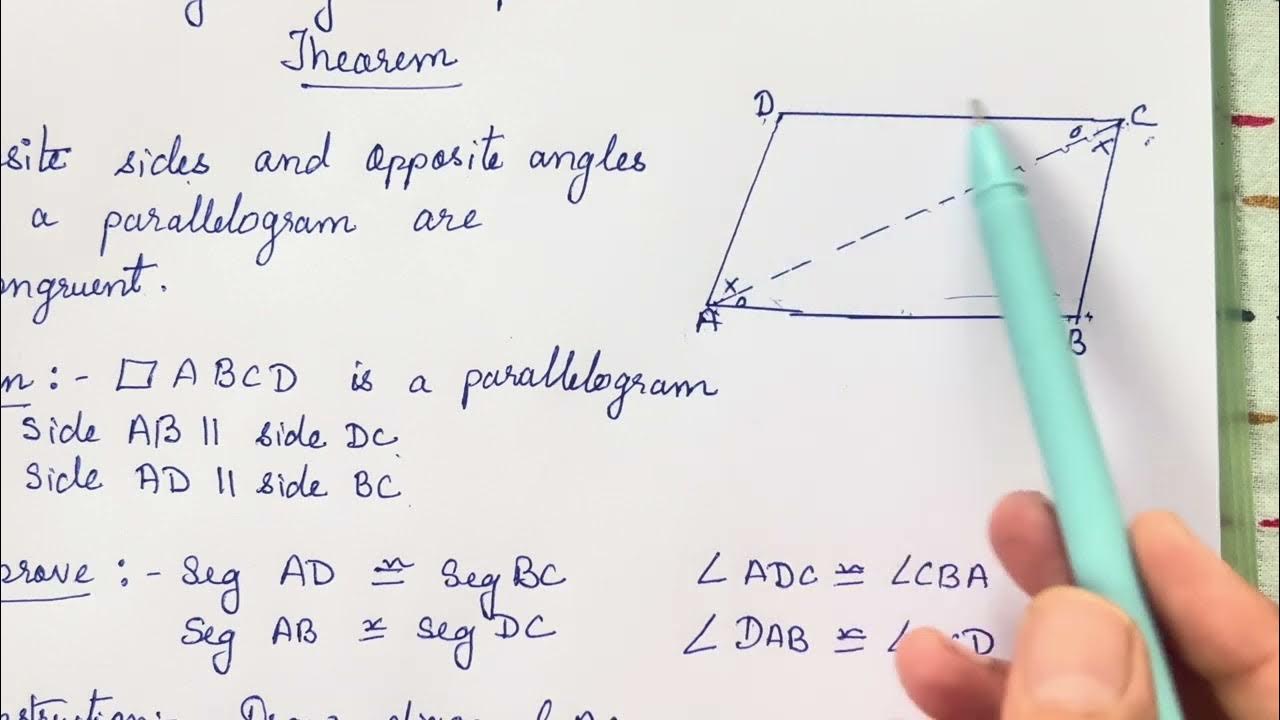 Theorem
site sides and opposite angles
a parallelogram are
ongruent.
n :- □ ABCD is a parallelogram
Side AB || side DC
Side AD || side BC
prove :- Seg AD ≅ Seg BC
Seg AB ≅ seg DC
∠ADC ≅ ∠CBA
∠DAB ≅ ∠
D
D
C
A
B
x
o
o
x